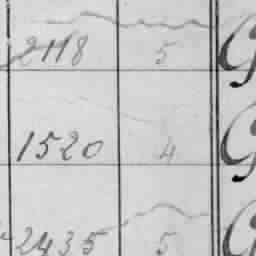 2118 5 G
1520 4 G
2435 5 G